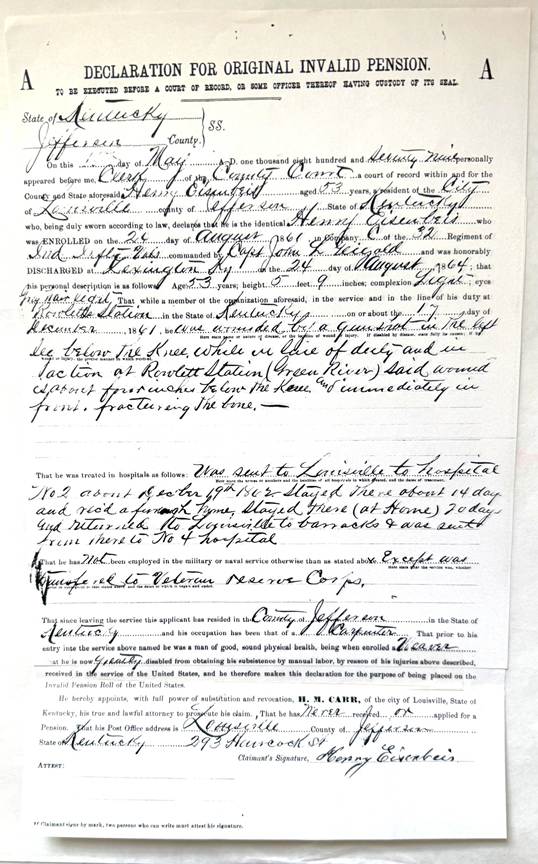 A DECLARATION FOR ORIGINAL INVALID PENSION. A
TO BE EXECUTED BEFORE A COURT OF RECORD, OR SOME OFFICER THEREOF HAVING CUSTODY OF ITS SEAL.
State of Kentucky
Jefferson County. } SS.
On this day of May A. D. one thousand eight hundred and Seventy Nine personally
appeared before me, Clerk of the County Court a court of record within and for the
County and State aforesaid Henry Eisenbeis aged 53 years, a resident of the City
of Louisville county of Jefferson State of Kentucky
who, being duly sworn according to law, declares that he is the identical Henry Eisenbeis who
was ENROLLED on the 24 day of August 1861 in company C of the 32 Regiment of
Ind commanded by Capt John and was honorably
DISCHARGED at Lexington Ky on the 24 day of August 1864; that
his personal description is as follows: Aged 53 years; height 5 feet 9 inches; complexion Light; eyes
That while a member of the organization aforesaid, in the service and in the line of his duty at
Rowletts Station in the State of Kentucky on or about the 17 day of
December, 1861, he was wounded by a gunshot in the left
leg below the Knee, while in line of duty and in
action at Rowlett Station (Green River) said wound
is about four inches below the Knee and immediately in
front, fracturing the bone. —
That he was treated in hospitals as follows: Was sent to Louisville to hospital
No 2 about 19th 1862 Stayed there about 14 day
and rec'd a furough home, Stayed there (at Home) 20 days
and returned to Louisville to barracks & was sent
from there to No 4 hospital
That he has Not been employed in the military or naval service otherwise than as stated above Except was
transfered to Veteran reserve Corps.
That since leaving the service this applicant has resided in the County of Jefferson in the State of
Kentucky and his occupation has been that of a Carpenter That prior to his
entry into the service above named he was a man of good, sound physical health, being when enrolled a Weaver
that he is now greatly disabled from obtaining his subsistence by manual labor, by reason of his injuries above described,
received in the service of the United States, and he therefore makes this declaration for the purpose of being placed on the
Invalid Pension Roll of the United States.
He hereby appoints, with full power of substitution and revocation, H. M. CARR, of the city of Louisville, State of
Kentucky, his true and lawful attorney to prosecute his claim. That he has Never received or applied for a
Pension, that his Post Office address is Louisville County of Jefferson
State of Kentucky 293 Hancock St
Claimant's Signature, Henry Eisenbeis
ATTEST:
If Claimant signs by mark, two persons who can write must attest his signature.